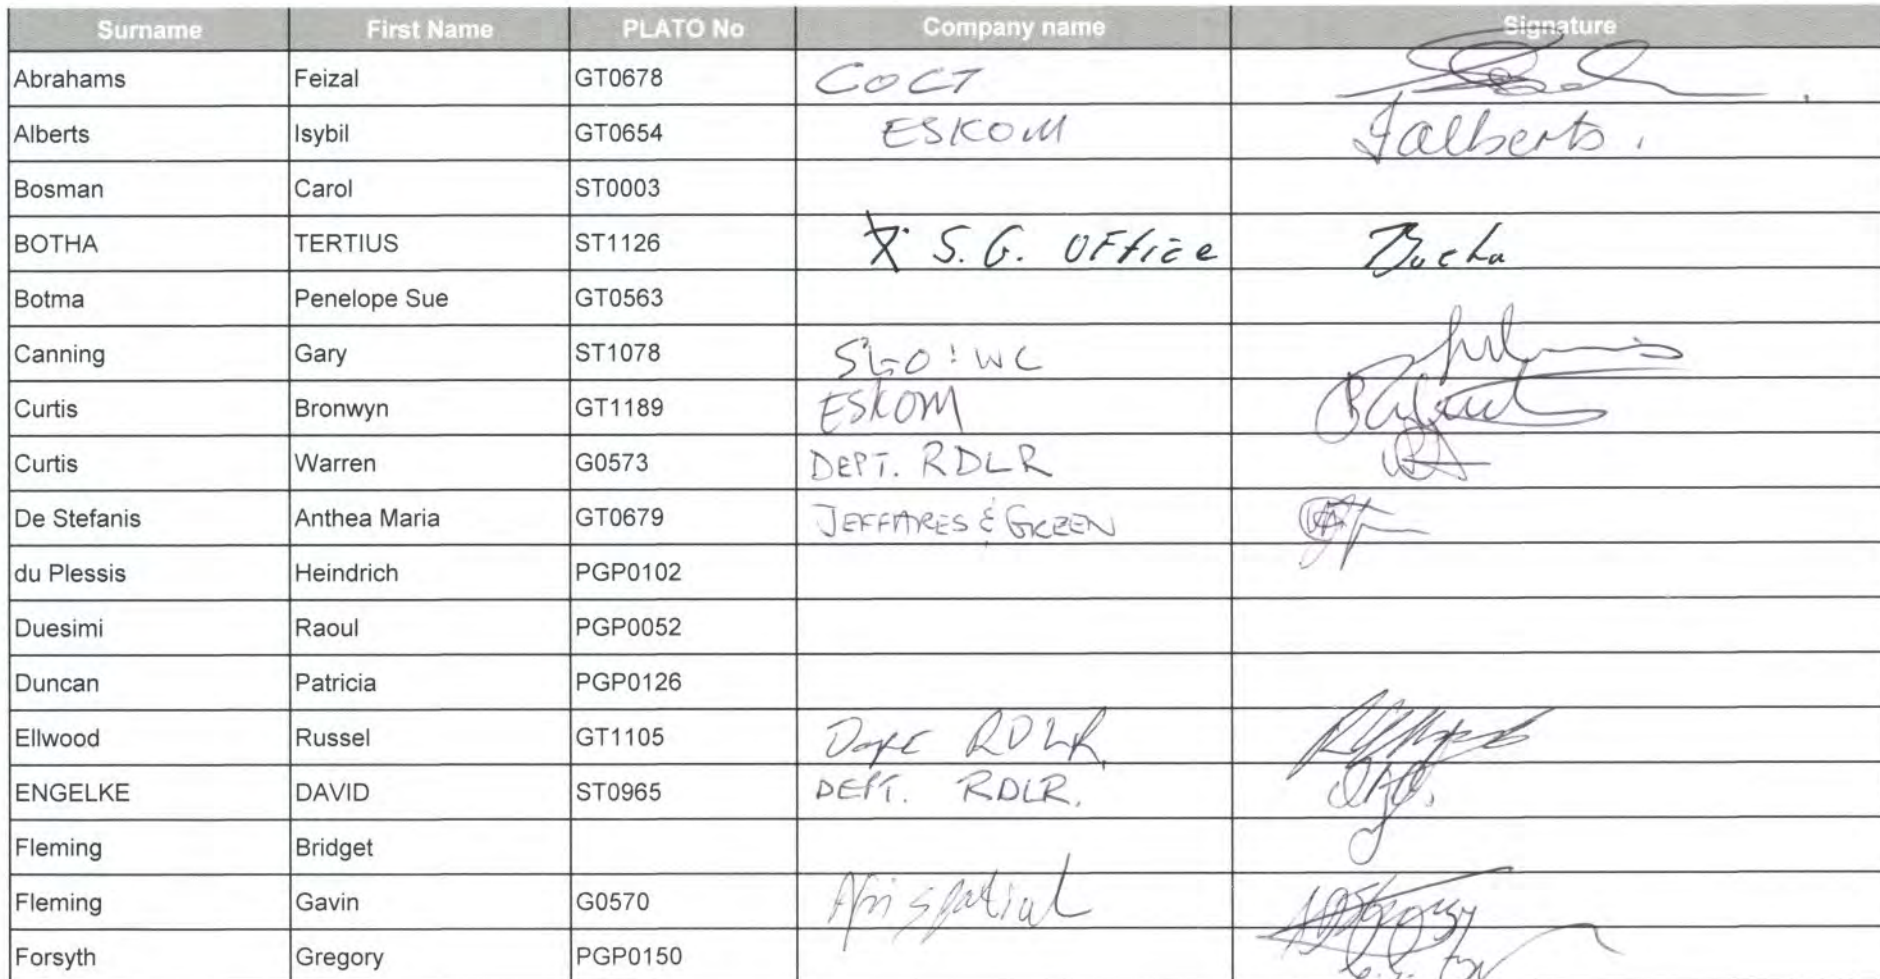 Surname First Name PLATO No Company name Signature
Abrahams Feizal GT0678 COCT
Alberts Isybil GT0654 ESKOM Ialberts.
Bosman Carol ST0003
BOTHA TERTIUS ST1126 X S.G. OFFice
Botma Penelope Sue GT0563
Canning Gary ST1078 SGO:WC
Curtis Bronwyn GT1189 ESKOM
Curtis Warren G0573 DEPT. RDLR
De Stefanis Anthea Maria GT0679 JEFFARES & GREEN
du Plessis Heindrich PGP0102
Duesimi Raoul PGP0052
Duncan Patricia PGP0126
Ellwood Russel GT1105 RDLR
ENGELKE DAVID ST0965 DEPT. RDLR.
Fleming Bridget
Fleming Gavin G0570 Afrispatial
Forsyth Gregory PGP0150